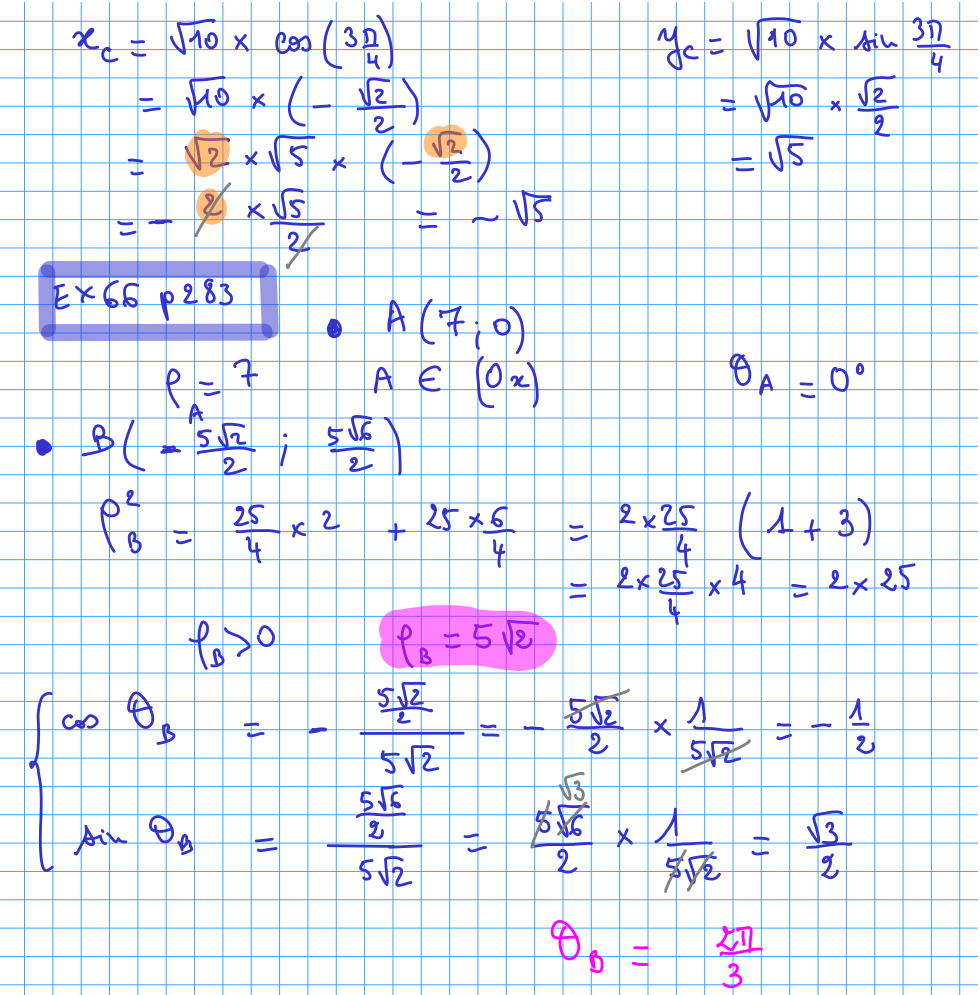 x_C = √10 × cos(3π/4) y_C = √10 × sin 3π/4
= √10 × (- √2/2) = √10 × √2/2
= √2 × √5 × (- √2/2) = √5
= - 2 × √5/2 = - √5
Ex 66 p283
• A(7 ; 0)
ρ_A = 7 A ∈ (Ox) θ_A = 0°
• B(- 5√2/2 ; 5√6/2)
ρ_B² = 25/4 × 2 + 25 × 6/4 = 2 × 25/4 (1 + 3)
= 2 × 25/4 × 4 = 2 × 25
ρ_B > 0 ρ_B = 5√2
{ cos θ_B = - (5√2/2)/(5√2) = - 5√2/2 × 1/(5√2) = - 1/2
sin θ_B = (5√6/2)/(5√2) = √3 5√6/2 × 1/(5√2) = √3/2
θ_B = 2π/3